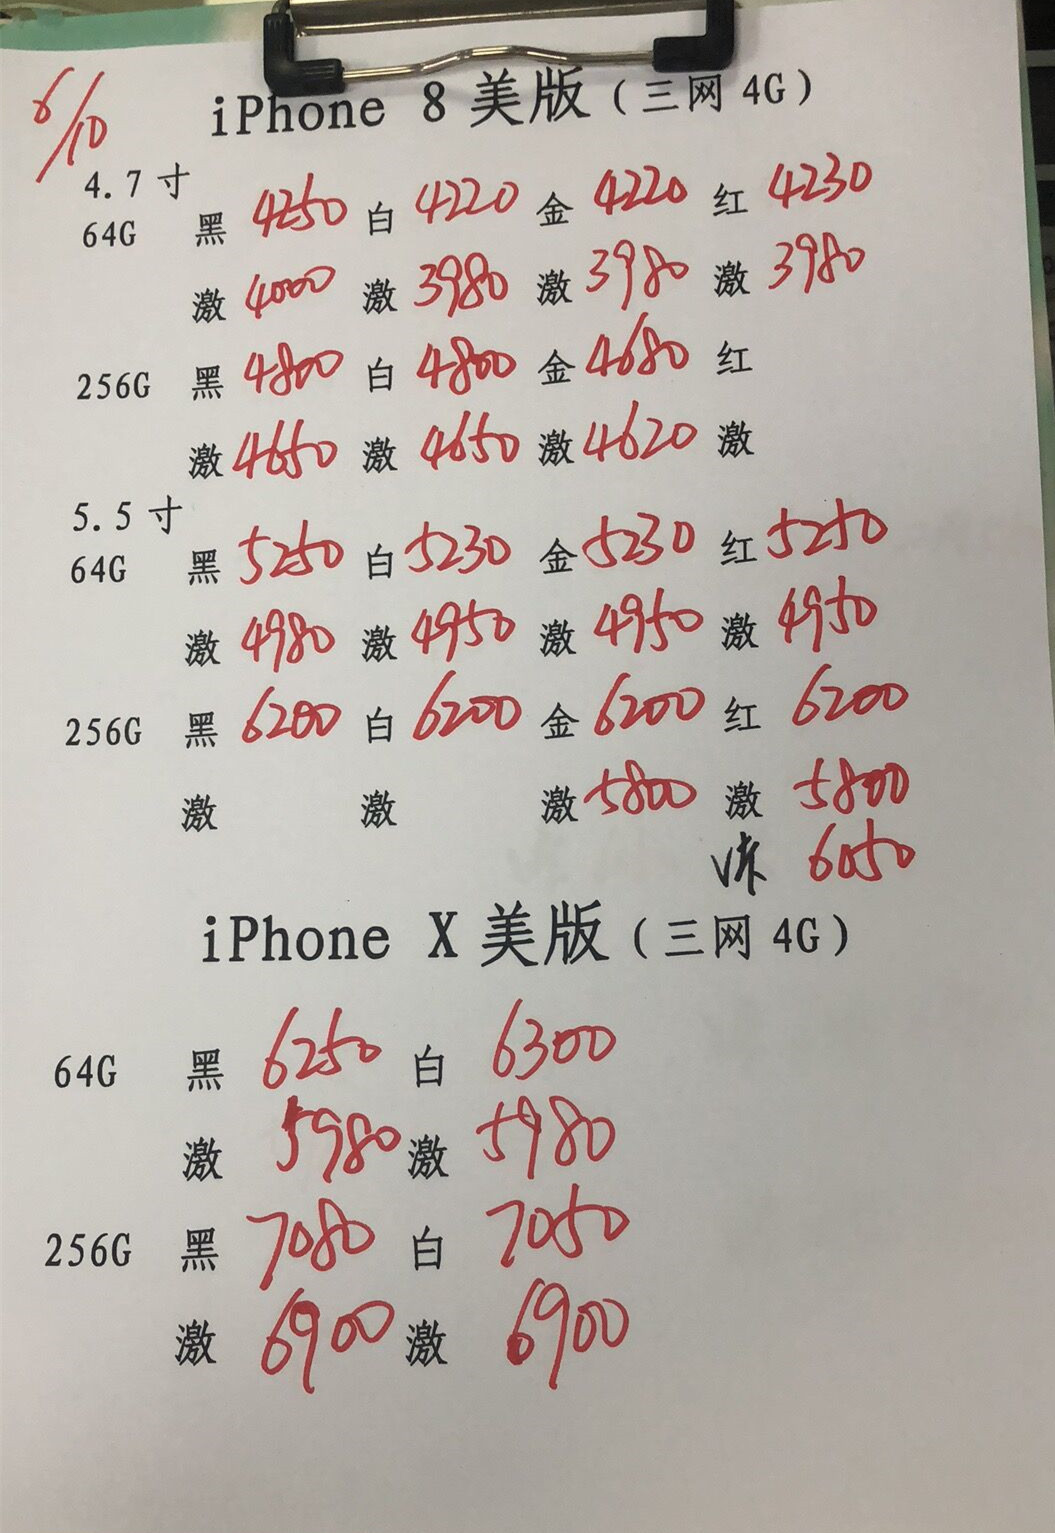 6/10
iPhone 8 美版（三网 4G）
4.7 寸
64G 黑 4250 白 4220 金 4220 红 4230
激 4000 激 3980 激 3980 激 3980
256G 黑 4800 白 4800 金 4680 红
激 4650 激 4650 激 4620 激
5.5 寸
64G 黑 5250 白 5230 金 5230 红 5250
激 4980 激 4950 激 4950 激 4950
256G 黑 6200 白 6200 金 6200 红 6200
激 激 激 5800 激 5800
6050
iPhone X 美版（三网 4G）
64G 黑 6250 白 6300
激 5980 激 5980
256G 黑 7080 白 7050
激 6900 激 6900